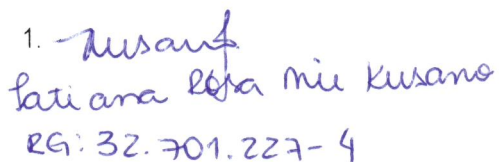 1. Kusano
Tatiana Rosa Mie Kusano
RG: 32.701.227-4